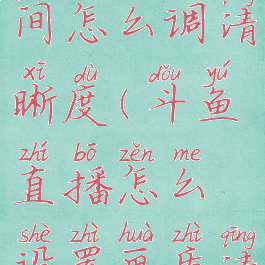 间怎么调清
xī dù dǒu yú
晰度(斗鱼
zhí bō zěn me
直播怎么
shè zhì huà zhì qīng
设置画质清